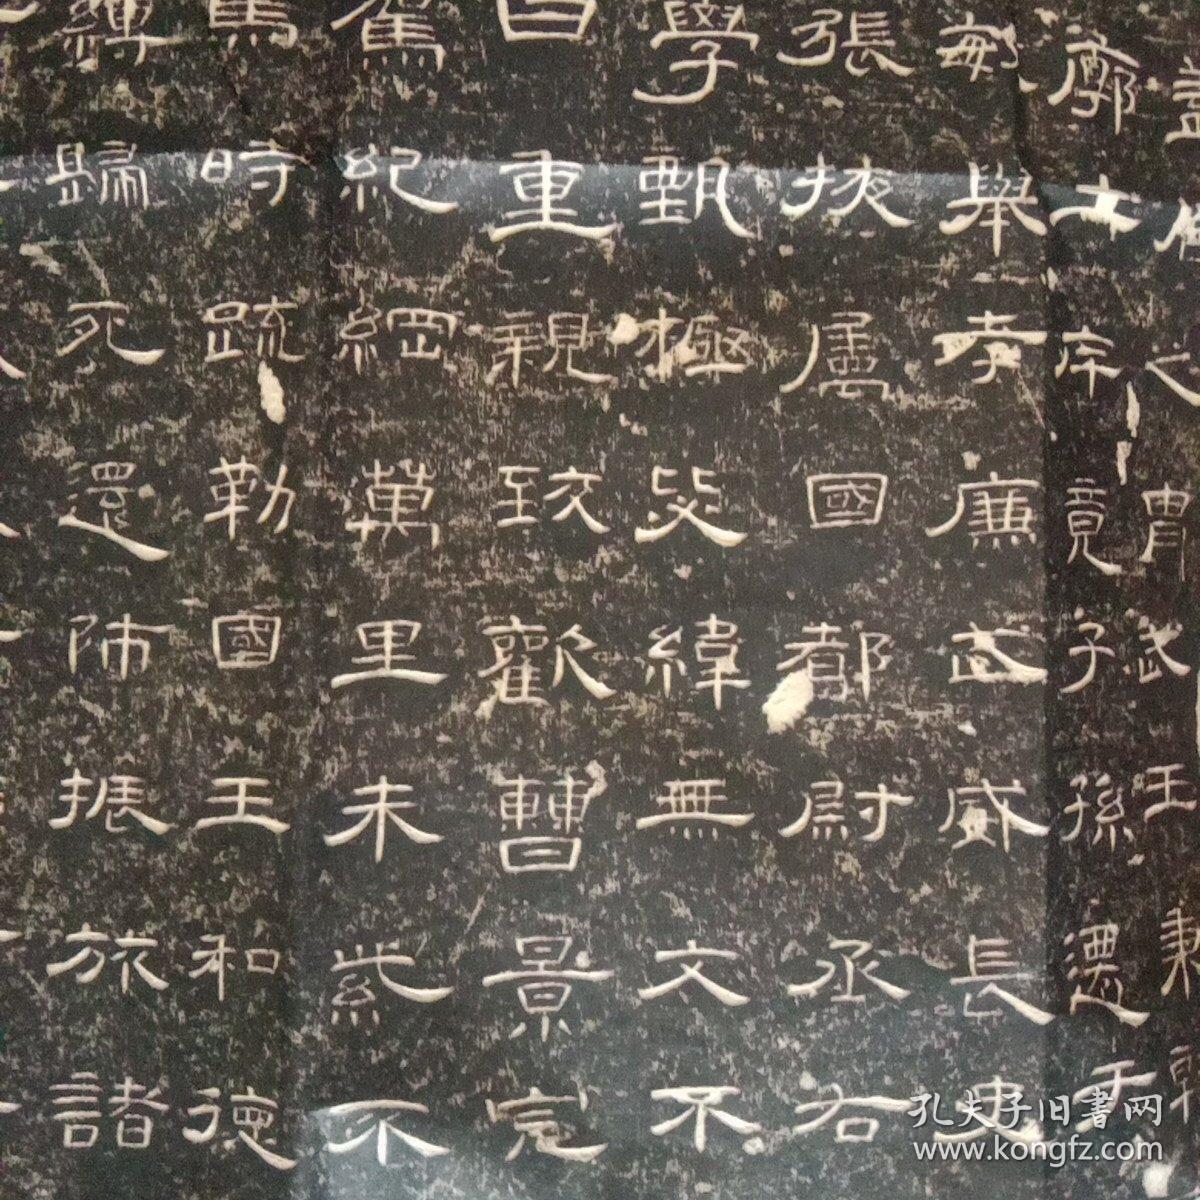 蓋周之胄武王秉乾
廓土斥竟子孫遷于
敏舉孝廉武威長史
張掖属國都尉丞右
學甄極毖緯無文不
自重親致歡曹景完
駕紀綱萬里朱紫不
馬時疏勒國王和德
縛歸死還師振旅諸
孔夫子旧書网
www.kongfz.com